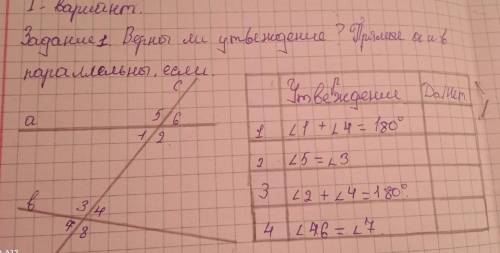 1 - вариант.
Задание 1. Верны ли утвеждение? Прямые а и в
параллельны, если.
c
a
5 6
1 2
в
3 4
7 8
Утвеждении Да/нет
1 ∠1 + ∠4 = 180°
2 ∠5 = ∠3
3 ∠2 + ∠4 = 180°.
4 ∠46 = ∠7